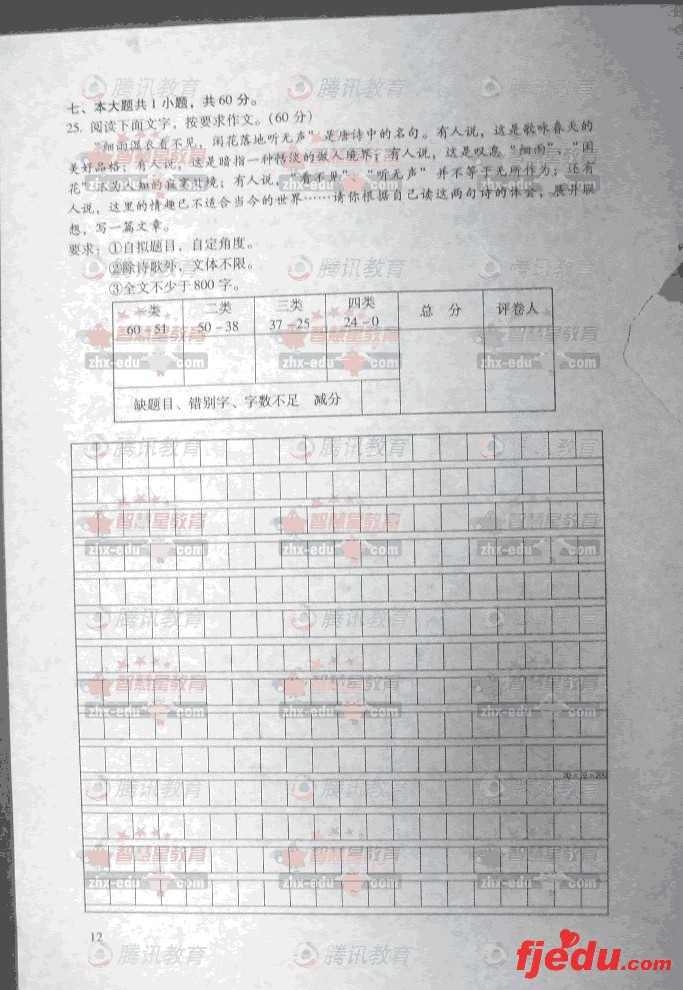 七、本大题共1小题，共60分。
25. 阅读下面文字，按要求作文。(60分)
“细雨湿衣看不见，闲花落地听无声”是唐诗中的名句。有人说，这是歌咏春天的
美好品格；有人说，这是暗指一种恬淡的做人境界；有人说，这是叹惋“细雨”、“闲
花”不为人知的寂寞处境；有人说，“看不见”、“听无声”并不等于无所作为；还有
人说，这里的情趣已不适合当今的世界……请你根据自己读这两句诗的体会，展开联
想，写一篇文章。
要求：①自拟题目，自定角度。
②除诗歌外，文体不限。
③全文不少于800字。
一类 二类 三类 四类 总 分 评卷人
60-51 50-38 37-25 24-0
缺题目、错别字、字数不足 减分
12
腾讯教育
智慧星教育
zhx-edu com
fjedu.com